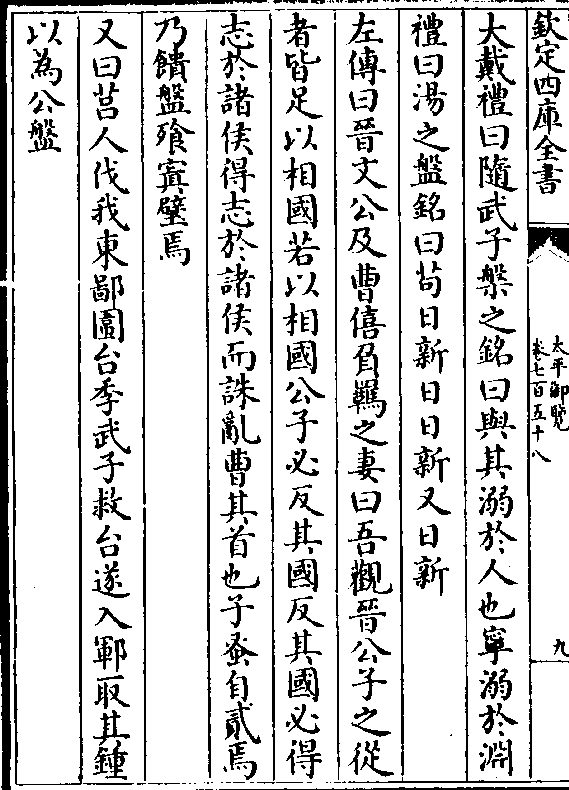 欽定四庫全書
太平御覽
卷七百五十八
九
大戴禮曰隨武子槃之銘曰與其溺於人也寧溺於淵
禮曰湯之盤銘曰茍日新日日新又日新
左傳曰晉文公及曹僖負羈之妻曰吾觀晉公子之從
者皆足以相國若以相國公子必反其國反其國必得
志於諸侯得志於諸侯而誅亂曹其首也子蚤自貳焉
乃饋盤飱寘璧焉
又曰莒人伐我東鄙圍台季武子救台遂入鄆取其鍾
以為公盤